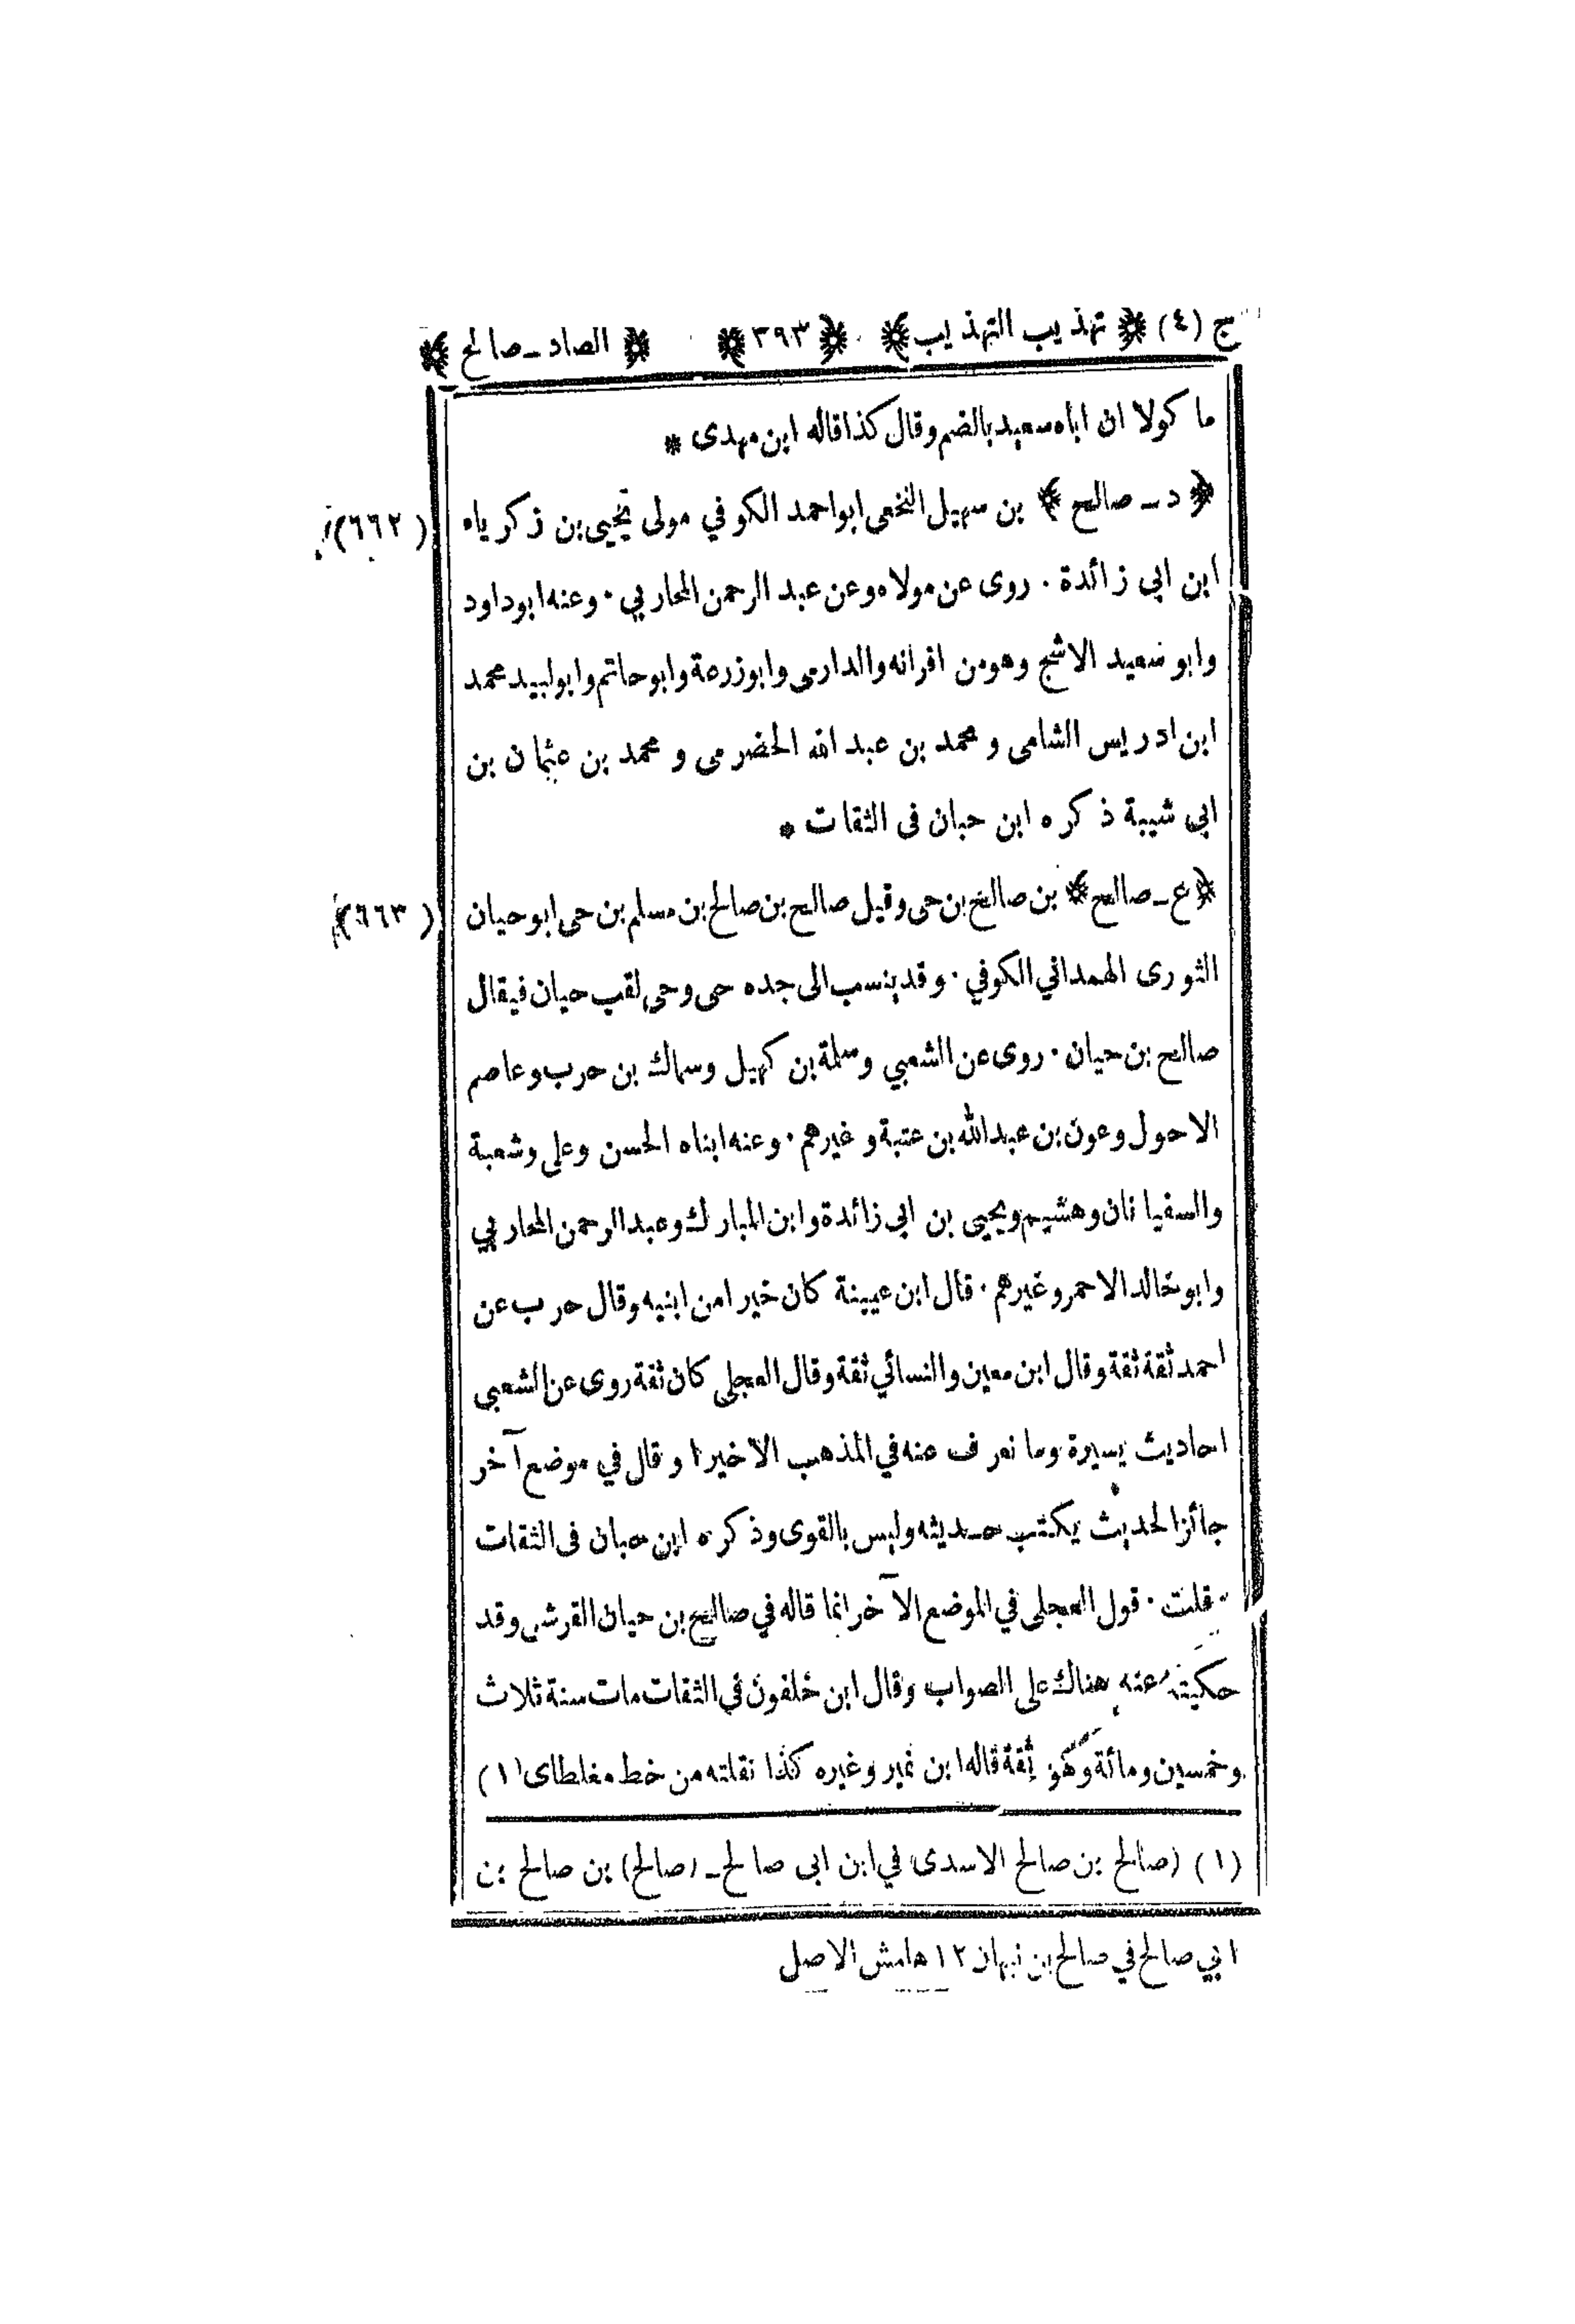 ج (٤) ﴿ تهذيب التهذيب ﴾ ﴿ ٣٩٣ ﴾ ﴿ الصاد ـ صالح ﴾
ما كولا ان اباه سعيد بالضم وقال كذا قاله ابن مهدى *
﴿ د ـ صالح ﴾ بن سهيل النخعى ابواحمد الكوفي مولى يحيى بن زكرياه (٦٦٢)
ابن ابى زائدة . روى عن مولاه وعن عبد الرحمن المحاربي . وعنه ابوداود
وابو سعيد الاشج وهومن اقرانه والدارمى وابوزرعة وابوحاتم وابولبيد محمد
ابن ادريس الشامى و محمد بن عبد الله الحضرمى و محمد بن عثمان بن
ابى شيبة ذكره ابن حبان فى الثقات *
﴿ ع ـ صالح ﴾ بن صالح بن حى وقيل صالح بن صالح بن مسلم بن حى ابوحيان (٦٦٣)
الثورى الهمدانى الكوفي . وقد ينسب الى جده حى وحى لقب حيان فيقال
صالح بن حيان . روى عن الشعبي وسلمة بن كهيل وسماك بن حرب وعاصم
الاحول وعون بن عبدالله بن عتبة وغيرهم . وعنه ابناه الحسن وعلى وشعبة
والسفيانان وهشيم ويحيى بن ابي زائدة وابن المبارك وعبدالرحمن المحاربي
وابوخالد الاحمر وغيرهم . قال ابن عيينة كان خيرا من ابنيه وقال حرب عن
احمد ثقة ثقة وقال ابن معين والنسائي ثقة وقال العجلى كان ثقة روى عن الشعبي
احاديث يسيرة وما نعرف عنه في المذهب الاخيرا وقال في موضع آخر
جائز الحديث يكتب حديثه وليس بالقوى وذكره ابن حبان فى الثقات
. قلت . قول العجلى في الموضع الآخر انما قاله في صالح بن حيان القرشى وقد
حكيته عنه هناك على الصواب وقال ابن خلفون في الثقات مات سنة ثلاث
وخمسين ومائة وهو ثقة قاله ابن نمير وغيره كذا نقلته من خط مغلطاى (١)
(١) (صالح بن صالح الاسدى في ابن ابى صالح ـ (صالح) بن صالح بن
ابي صالح في صالح بن نبهان ١٢ هامش الاصل